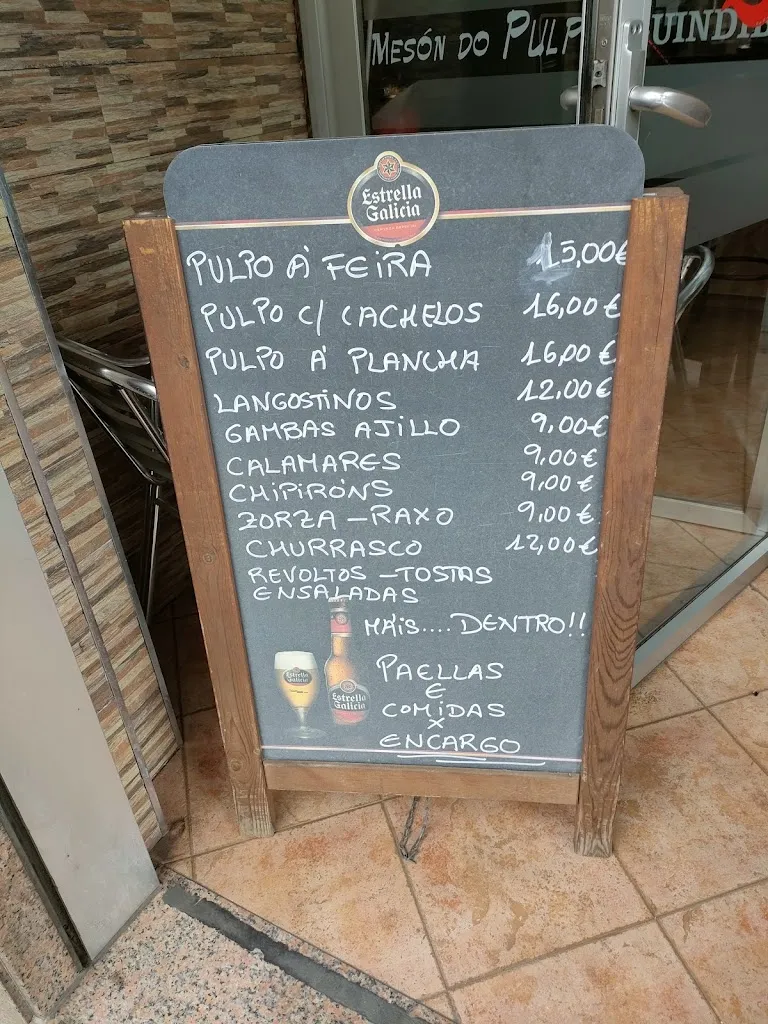 MESÓN DO PULP
UINDI
Estrella
Galicia
PULPO Á FEIRA 15,00€
PULPO C/ CACHELOS 16,00€
PULPO Á PLANCHA 16,00€
LANGOSTINOS 12,00€
GAMBAS AJILLO 9,00€
CALAMARES 9,00€
CHIPIRÓNS 9,00€
ZORZA – RAXO 9,00€
CHURRASCO 12,00€
REVOLTOS – TOSTAS
ENSALADAS
MÁIS.... DENTRO!!
PAELLAS
E
COMIDAS
X
ENCARGO
Estrella
Galicia
Estrella
Galicia